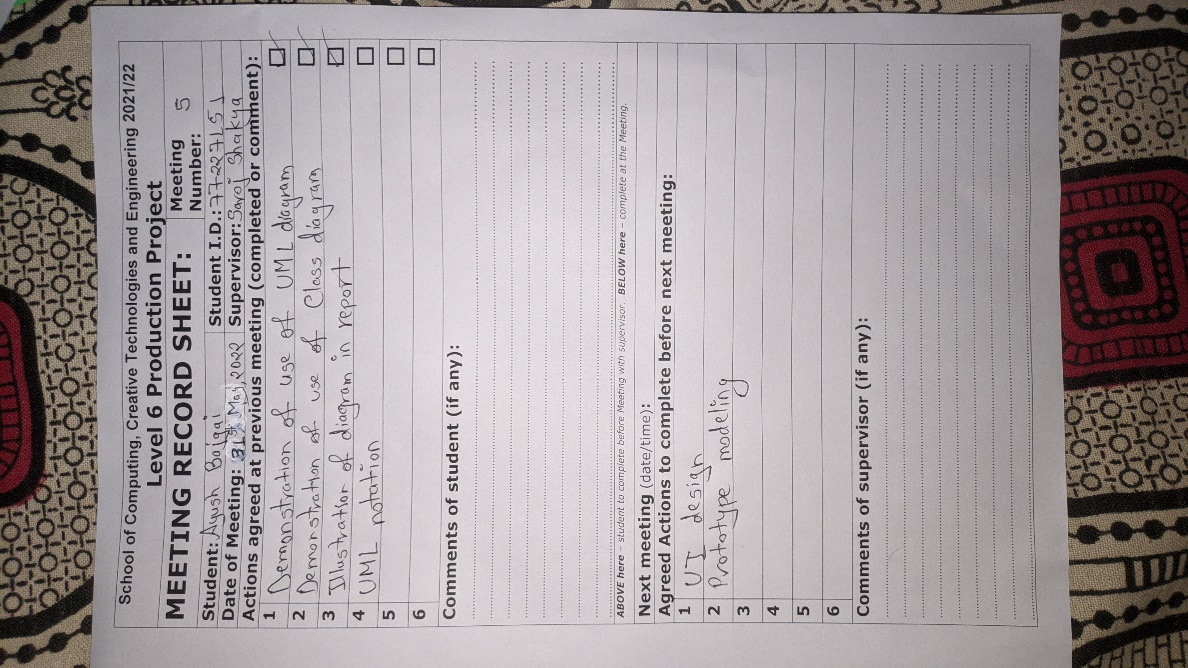 School of Computing, Creative Technologies and Engineering 2021/22
Level 6 Production Project
MEETING RECORD SHEET: Meeting Number: 5
Student: Ayush Bajgai Student I.D.: 77227151
Date of Meeting: 31st May, 2022 Supervisor: Saroj Shakya
Actions agreed at previous meeting (completed or comment):
1 Demonstration of use of UML diagram
2 Demonstration of use of Class diagram
3 Illustration of diagram in report
4 UML notation
5
6
Comments of student (if any):
ABOVE here – student to complete before Meeting with supervisor. BELOW here – complete at the Meeting.
Next meeting (date/time):
Agreed Actions to complete before next meeting:
1 UI design
2 Prototype modeling
3
4
5
6
Comments of supervisor (if any):